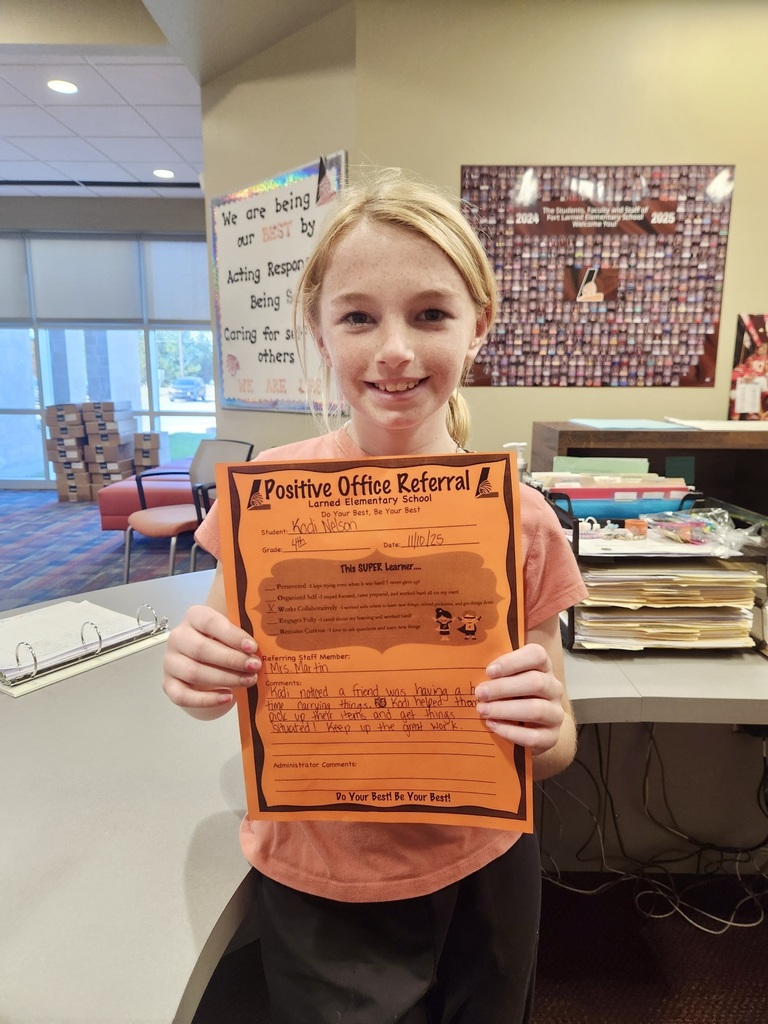 We are being
our BEST by
Acting Respon
Being S
Caring for se
others
WE ARE
2024 The Students, Faculty and Staff of 2025
Fort Larned Elementary School
Welcome You!
Positive Office Referral
Larned Elementary School
Do Your Best, Be Your Best
Student: Kadi Nelson
Grade: 4th Date: 11/10/25
This SUPER Learner....
Persevered -I kept trying even when it was hard! I never gave up!
Organized Self -I stayed focused, came prepared, and worked hard all on my own!
X Works Collaboratively -I worked with others to learn new things, solved problems, and got things done.
Engages Fully -I cared about my learning and worked hard!
Remains Curious -I love to ask questions and learn new things!
Referring Staff Member:
Mrs. Martin
Comments:
Kadi noticed a friend was having a h
time carrying things. Kadi helped them
pick up their items and get things
situated! Keep up the great work.
Administrator Comments:
Do Your Best! Be Your Best!